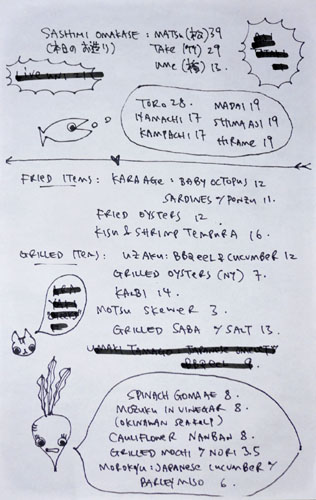 SASHIMI OMAKASE : MATSU (松) 39
(本日のお造り) TAKE (竹) 29
UME (梅) 13.
TORO 28. MADAI 19
HAMACHI 17 SHIMA AJI 19
KAMPACHI 17 HIRAME 19
FRIED ITEMS : KARAAGE : BABY OCTOPUS 12
SARDINES w/ PONZU 11.
FRIED OYSTERS 12.
KISU & SHRIMP TEMPURA 16.
GRILLED ITEMS : UZAKU : BBQ EEL & CUCUMBER 12
GRILLED OYSTERS (NY) 7.
KALBI 14.
MOTSU SKEWER 3.
GRILLED SABA w/ SALT 13.
UMAKI TAMAGO JAPANESE OMELET w/
SPINACH GOMAAE 8.
MOZUKU IN VINEGAR 8.
(OKINAWAN SEAKELP)
CAULIFLOWER NANBAN 8.
GRILLED MOCHI w/ NORI 3.5
MOROKYU : JAPANESE CUCUMBER w/
BARLEY MISO 6.